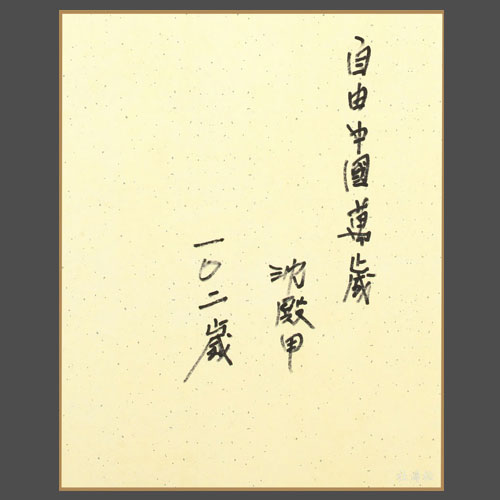 自由中國萬歲
沈殿甲
一〇二歲